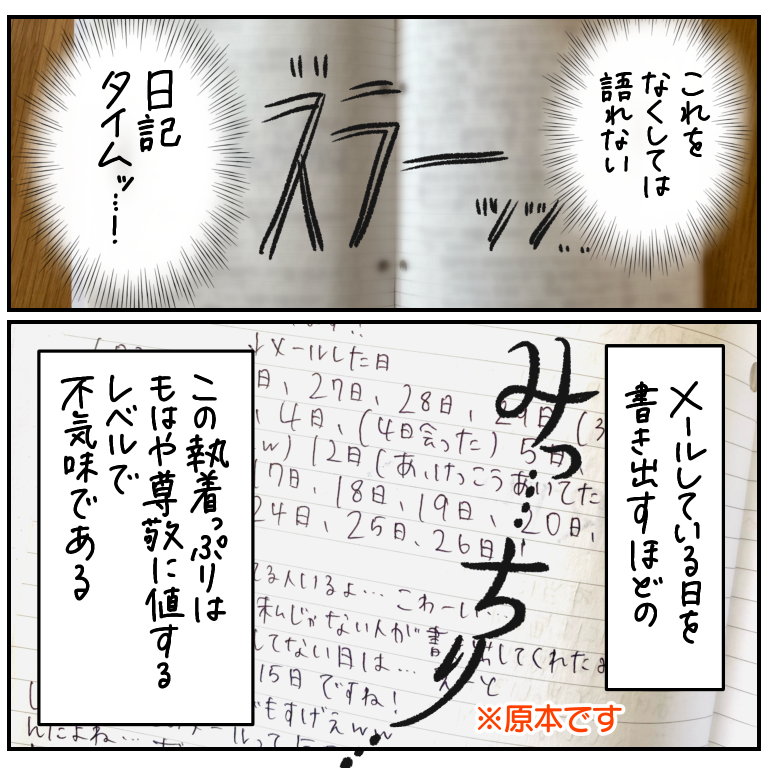 これを
なくしては
語れない
ズラーッッ...
日記
タイムッ…!
メールしている日を
書き出すほどの
みっ…ちり…
この執着っぷりは
もはや尊敬に値する
レベルで
不気味である
↓メールした日
日、27日、28日、29日(
、4日、(4日会った) 5日
w) 12日(あ、けっこうあいてた
17日、18日、19日、20日、
24日、25日、26日
てる人いるよ…こわーい…
私じゃない人が書き出してくれた
してない日は…えーと
15日ですね!
でもすげえww
んだよね…
※原本です